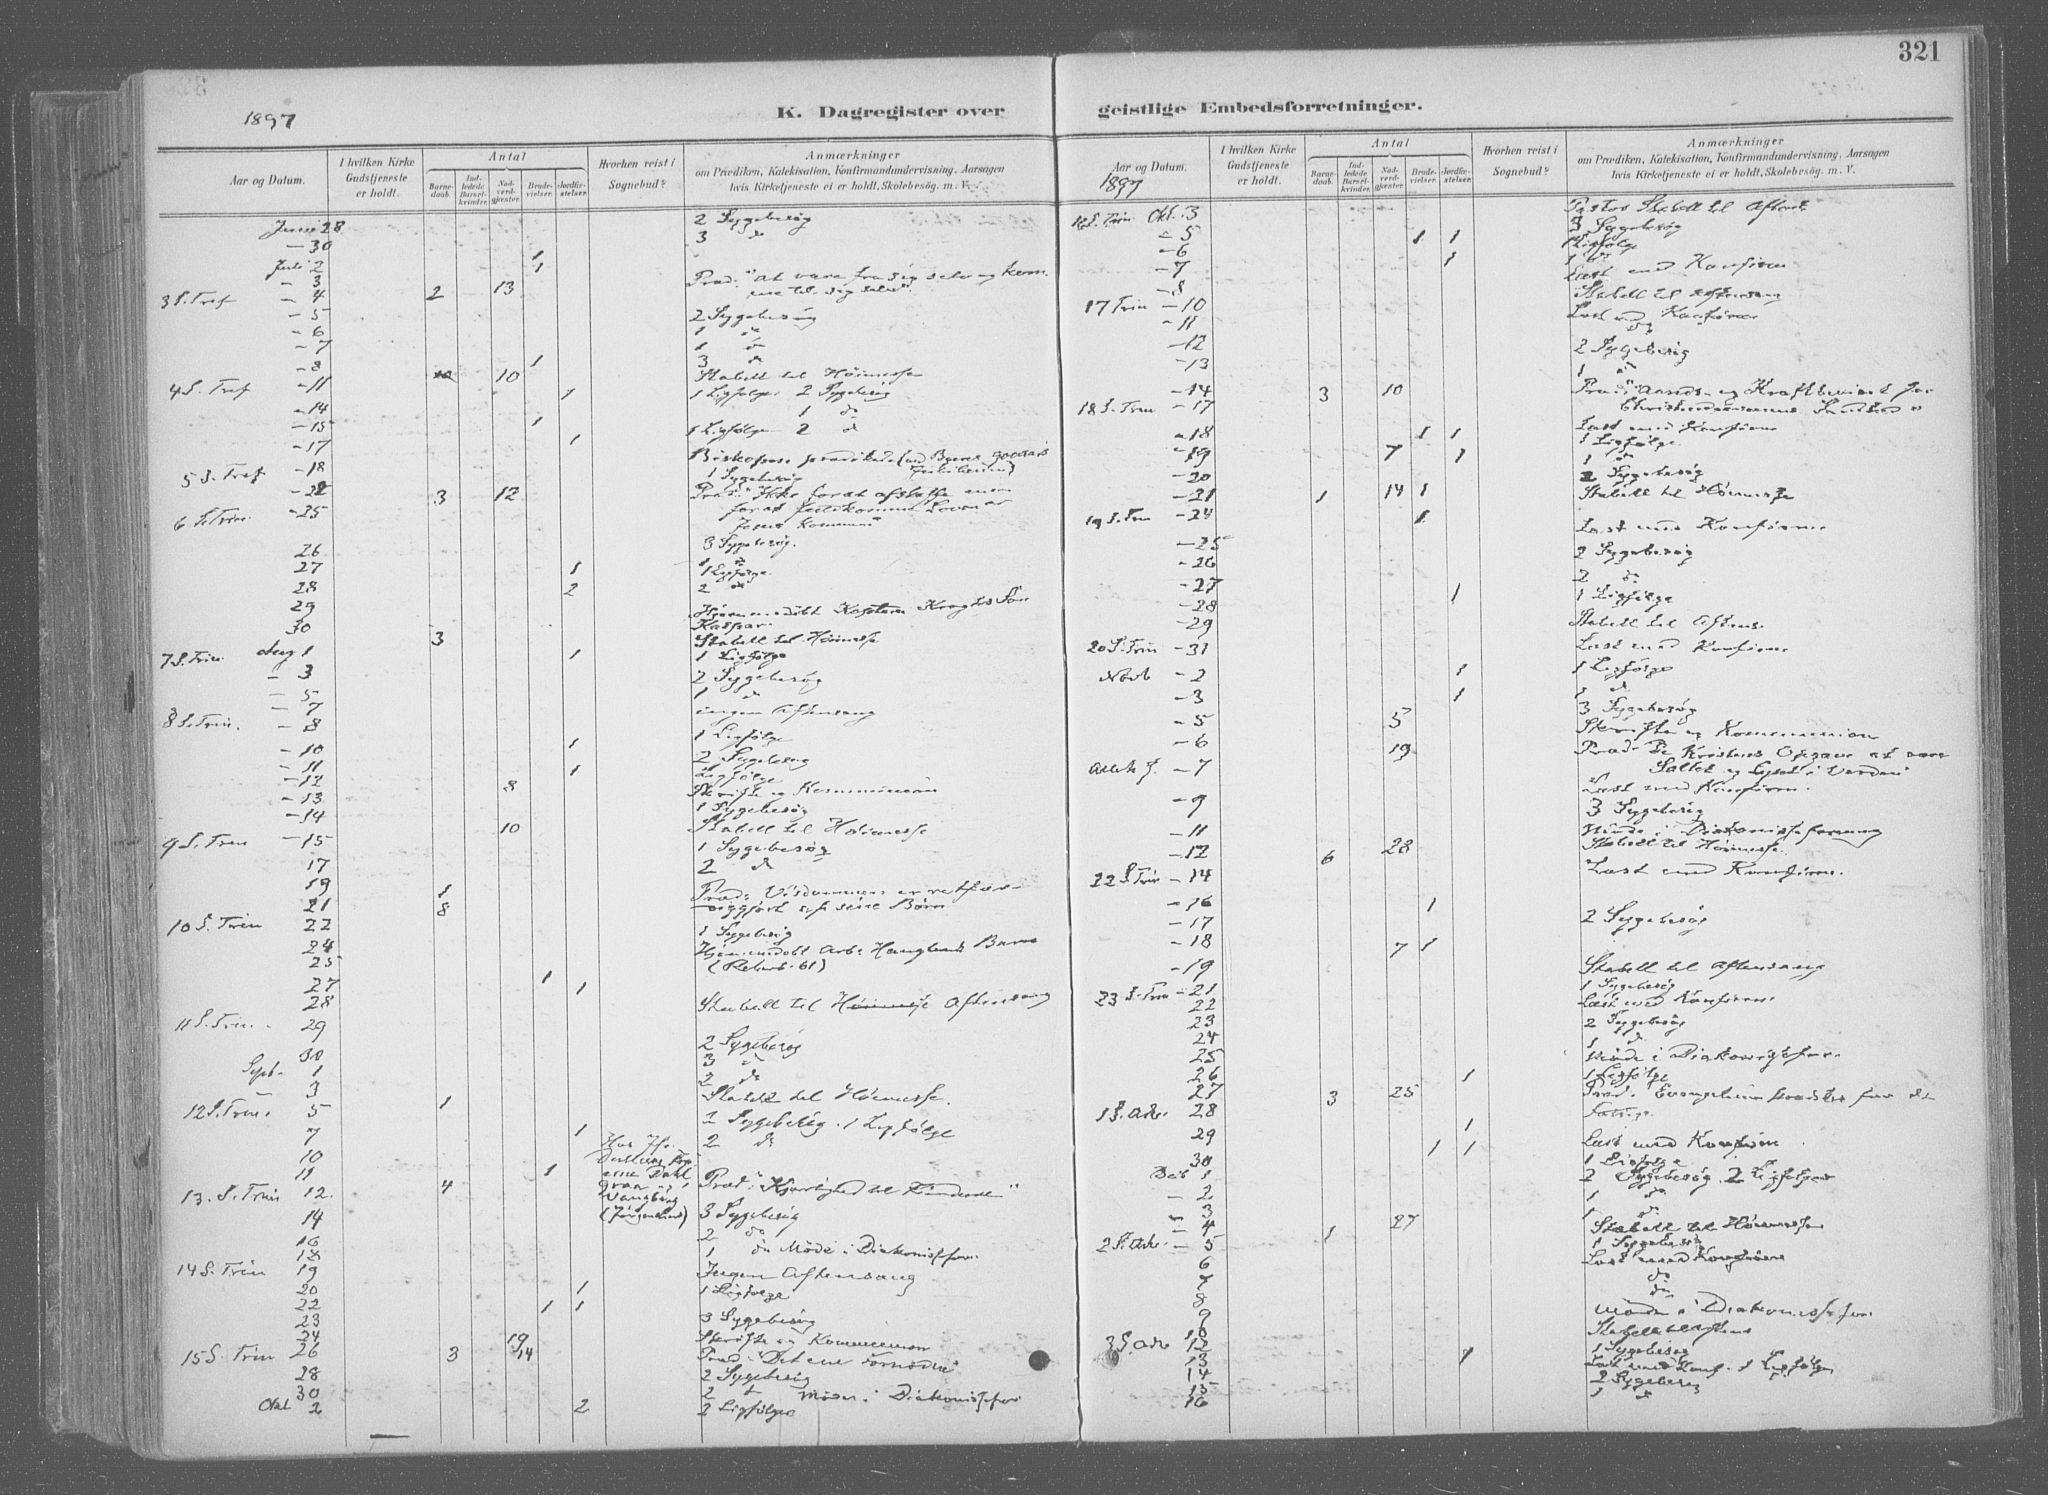 321
1897
K. Dagregister over
Aar og Datum.
I hvilken Kirke Gudstjeneste er holdt.
Antal
Barne-daab.
Ind-ledede Barsel-kvinder.
Nad-verd-gjæster.
Brude-vielser.
Jordfæ-stelser.
Hvorhen reist i Sognebud?
Anmærkninger
om Prædiken, Katekisation, Konfirmandundervisning, Aarsagen
hvis Kirketjeneste ei er holdt, Skolebesøg, m. V.
Juni 28 2 Sygebesøg
— 30 3 do
Juli 2 1
— 3 1
3 S. Tref — 4 2 13 Præd: "At være fra sig selv og kom-
me til sig selv"
— 5 2 Sygebesøg
— 6 1 do
— 7 1 do
— 8 1 3 do
4 S. Tref — 11 10 Stabell til Høimesse
— 14 1 1 Ligfølge 2 Sygebesøg
— 15 1 1 do
— 17 1 1 Ligfølge 2 do
5 S. Tref — 18
— 22 1 Sygebesøg
6 S. Trin. — 25 3 12 Præd: "Ikke for at afskaffe men
for at fuldkomme Loven er
Jesus kommen"
26 3 Sygebesøg.
27 1 do
28 1 1 Ligfølge
29 2 2 do
30 Hjemmedøbt
Kaspar.
7 S. Trin. Aug 1 3 Stabell til Høimesse
— 3 1 1 Ligfølge
— 5 2 Sygebesøg
— 7 1 do
8 S. Trin. — 8 ingen Aftensang
— 10 1 1 Ligfølge
— 11 2 Sygebesøg
— 12 1 Ligfølge
— 13 8 Skrifte og Kommunion
— 14 1 Sygebesøg
9 S. Trin — 15 10 Stabell til Høimesse
17 1 Sygebesøg
19 2 do
21 1
10 S. Trin 22 8 Præd: Visdommen er retfær-
diggjort af sine Børn
24 1 Sygebesøg
25 Hjemmedøbt Arb: Barn
27 1
28 1
11 S. Trin. 29 Stabell til Høimesse Aftensang
30 2 Sygebesøg
Sept. 1 3 do
3 2 do
12 S. Trin. 5 1 Stabell til Høimesse.
7 1 2 Sygebesøg. 1 Ligfølge
10 2 do
11 1
13. S. Trin 12. 4 Præd: "Kjærlighed til Fienderne"
14 3 Sygebesøg
16 2 do
18 1 do Møde i Diakonissefor.
14 S. Trin 19 Ingen Aftensang
20 1 1 Ligfølge
22 1 1
23 3 Sygebesøg
24 19 Skrifte og Kommunion
15 S. Trin 26 3 14 Præd: "Det ene Fornødne"
28 2 Sygebesøg
30 2 do Møde i Diakonissefor
Okt 2 2 2 Ligfølger
geistlige Embedsforretninger.
Aar og Datum.
1897
I hvilken Kirke Gudstjeneste er holdt.
Antal
Barne-daab.
Ind-ledede Barsel-kvinder.
Nad-verd-gjæster.
Brude-vielser.
Jordfæ-stelser.
Hvorhen reist i Sognebud?
Anmærkninger
om Prædiken, Katekisation, Konfirmandundervisning, Aarsagen
hvis Kirketjeneste ei er holdt, Skolebesøg, m. V.
16 S. Trin Okt. 3 Pastor Stabell til Aftens
— 5 1 1 3 Sygebesøg
— 6 1 Ligfølge
— 7 1 1 do
— 8 Læst med Konfirm
17 Trin — 10 Stabell til Aftensang
— 11 Læst med Konfirm
— 12 do
— 13 2 Sygebesøg
— 14 1 do
18 S. Trin — 17 3 10 Præd: Aands- og Kraftbeviset for
Christendommens Sandhed"
— 18 1 1 Læst med Konfirm
— 19 7 1 1 Ligfølge
— 20 1 do
— 21 1 14 1 2 Sygebesøg
19 S. Trin — 24 1 Stabell til Høimesse
— 25 Læst med Konfirm.
— 26 2 Sygebesøg
— 27 2 do
— 28 1 1 Ligfølge
— 29
20 S. Trin — 31 Stabell til Aftens.
Novb — 2 1 Læst med Konfirm
— 3 1 1 Ligfølge
— 5 5 1 do
— 6 19 3 Sygebesøg
Skrifte og Kommunion
Alleh. f. — 7 Præd: De Kristnes Opgave at være
Saltet og Lyset i Verden"
— 9 Læst med Konfirm.
— 11 3 Sygebesøg
— 12 6 28 Møde i Diakonisseforening
22 S. Trin — 14 Stabell til Høimesse.
— 16 1 Læst med Konfirm.
— 17
— 18 7 1 2 Sygebesøg
— 19
23 S. Trin — 21 Stabell til Aftensang
22 1 Sygebesøg
23 Læst med Konfirm.
24 2 Sygebesøg
25 1 do
26 1 Møde i Diakonissefor.
27 3 25 1 Ligfølge
1 S. Adv. 28 Præd: Evangelium prædikes for de
Fattige.
29 1
30 1 1 Læst med Konfirm
Deb 1 1 Ligfølge
— 2 2 Sygebesøg. 2 Ligfølger
— 3 1 do
— 4 27 1 do
2 S. Adv. — 5 1 Stabell til Høimesse
6 1 Sygebesøg
7 Læst med Konfirm
8 do
9 do
10 Møde i Diakonissefor.
3 S. Adv 12 Stabell til Aftens
13 1 1 Sygebesøg
14 Læst med Konf. 1 Ligfølge
15 2 Sygebesøg
16 1 do